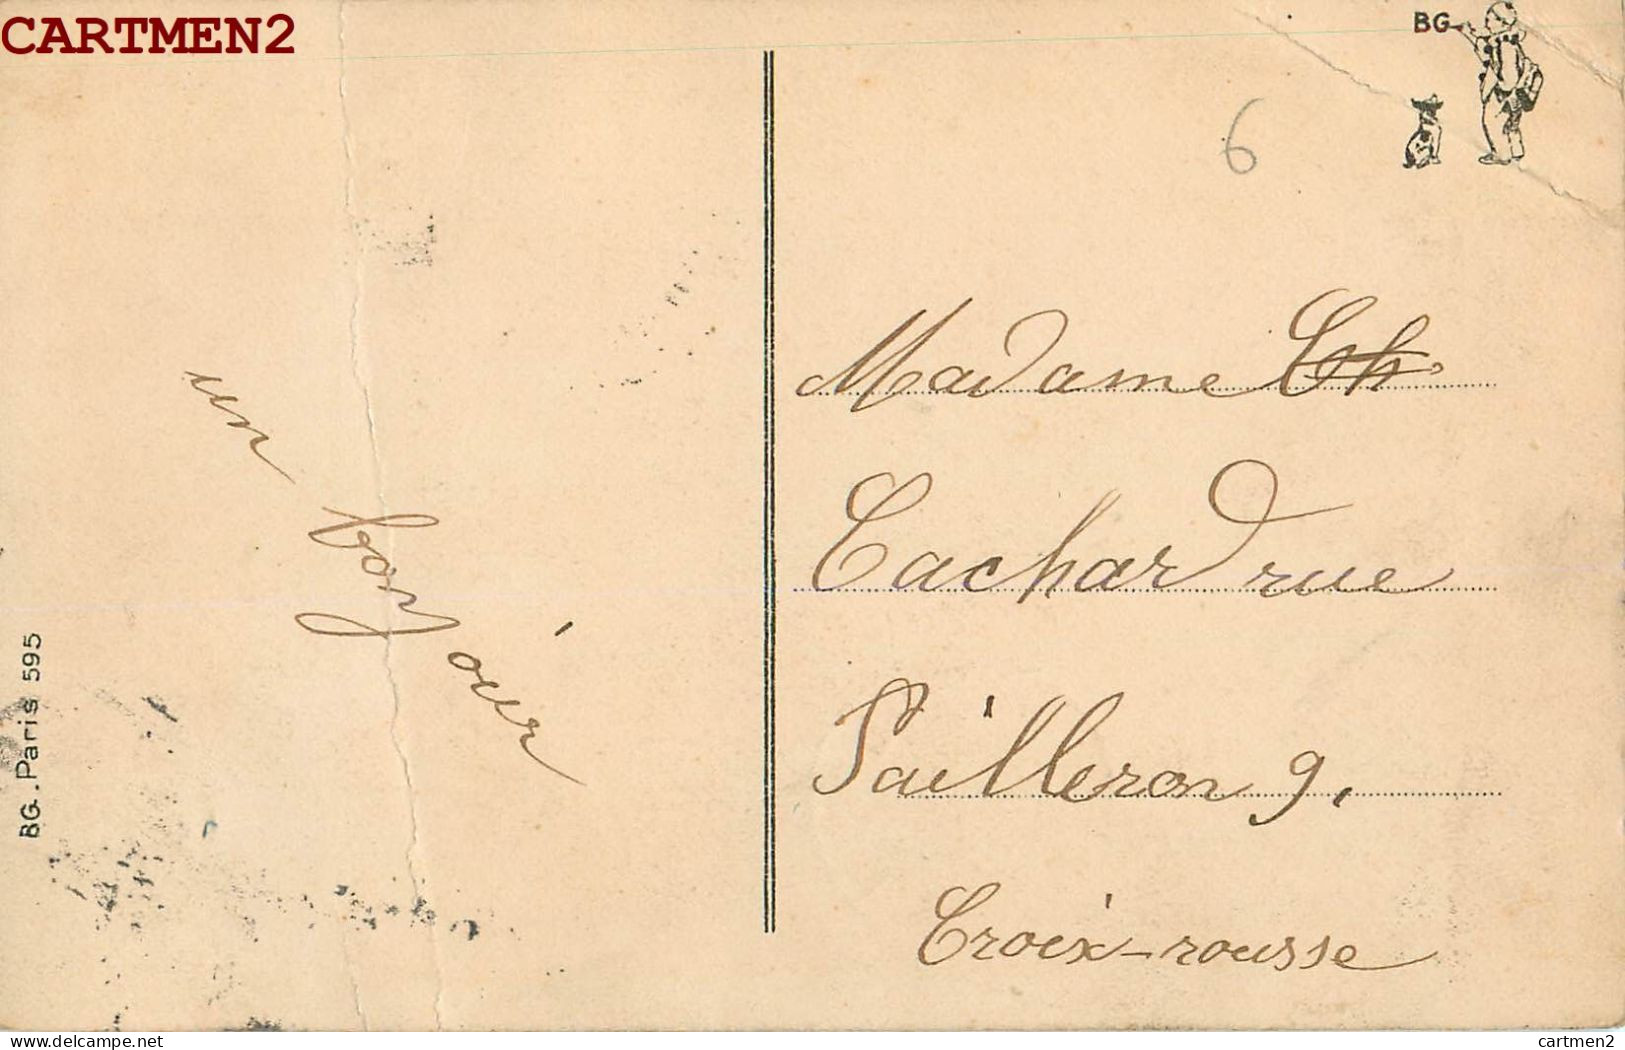 CARTMEN2
BG
6
un
bonjour
BG. Paris 595
Madame Ch.
Cachard rue
Pailleron 9,
Croix-rousse
www.delcampe.net
cartmen2